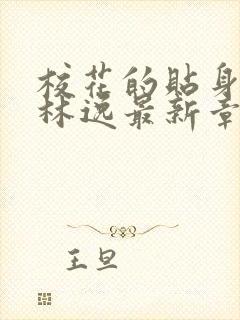 校花的贴身
林逸最新章
王旦